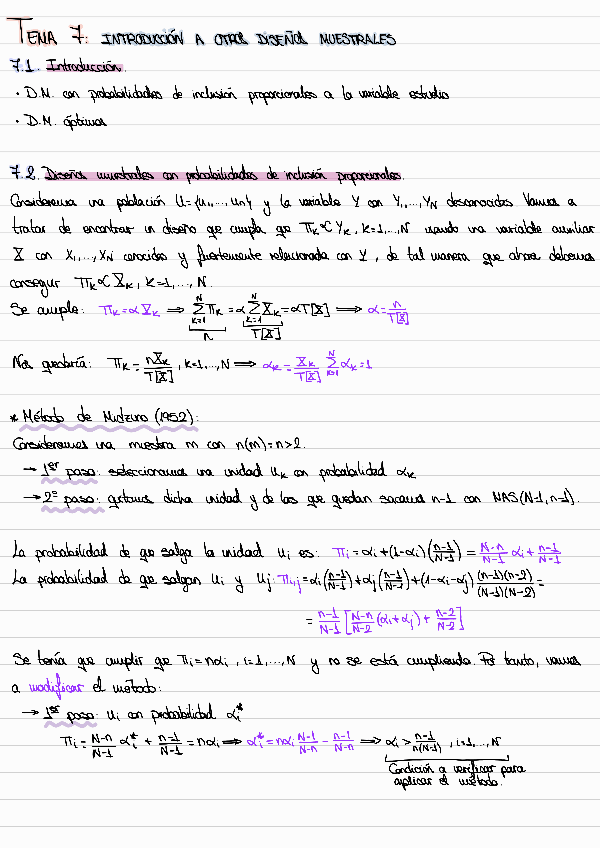 TEMA 7: INTRODUCCIÓN A OTROS DISEÑOS MUESTRALES
7.1. Introducción.
· D.M. con probabilidades de inclusión proporcionales a la variable estudio
· D.M. óptimos
7.2. Diseños muestrales con probabilidades de inclusión proporcionales.
Consideremos una población U={u₁,...,u_N} y la variable Y con Y₁,...,Y_N desconocidos. Vamos a
tratar de encontrar un diseño que cumpla que Π_k ∝ Y_k, k=1,...,N usando una variable auxiliar
X con X₁,...,X_N conocidos y fuertemente relacionada con Y, de tal manera que ahora debemos
conseguir Π_k ∝ X_k, k=1,...,N.
Se cumple: Π_k = αX_k ⟹ Σ_{k=1}^N Π_k = α Σ_{k=1}^N X_k = αT[X] ⟹ α = n/T[X]
n T[X]
Nos quedaría: Π_k = nX_k/T[X], k=1,...,N ⟹ α_k = X_k/T[X] Σ_{k=1}^N α_k = 1
* Método de Midzuno (1952):
Consideremos una muestra m con n(m)=n>2.
→ 1er paso: seleccionamos una unidad u_k con probabilidad α_k
→ 2º paso: quitamos dicha unidad y de las que quedan sacamos n-1 con MAS(N-1, n-1).
La probabilidad de que salga la unidad u_i es: Π_i = α_i + (1-α_i)((n-1)/(N-1)) = (N-n)/(N-1) α_i + (n-1)/(N-1)
La probabilidad de que salgan u_i y u_j: Π_{i,j} = α_i((n-1)/(N-1)) + α_j((n-1)/(N-1)) + (1-α_i-α_j) ((n-1)(n-2))/((N-1)(N-2)) =
= (n-1)/(N-1) [(N-n)/(N-2) (α_i+α_j) + (n-2)/(N-2)]
Se tenía que cumplir que Π_i = nα_i, i=1,...,N y no se está cumpliendo. Por tanto, vamos
a modificar el método:
→ 1er paso: u_i con probabilidad α_i*
Π_i = (N-n)/(N-1) α_i* + (n-1)/(N-1) = nα_i ⟹ α_i* = nα_i (N-1)/(N-n) - (n-1)/(N-n) ⟹ α_i > (n-1)/(n(N-1)), i=1,...,N
Condición a verificar para
aplicar el método.